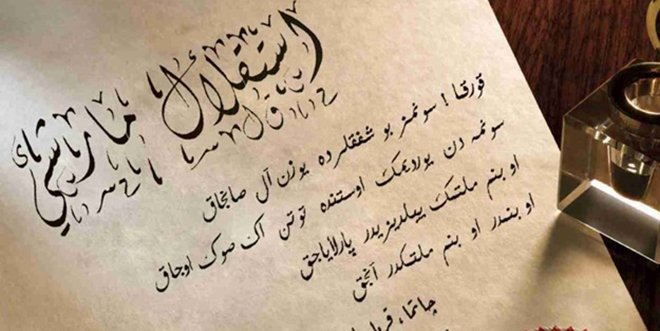 استقلال مارشی
قورقما ! سونمز بو شفقلرده یوزن آل صانجاق
سونمه دن یوردیمك اوستنده توتن اك صوك اوجاق
او بنم ملتمك ییلدیزیدر پارلایاجق
او بنمدر او بنم ملتمكدر آنجق
چاتما،